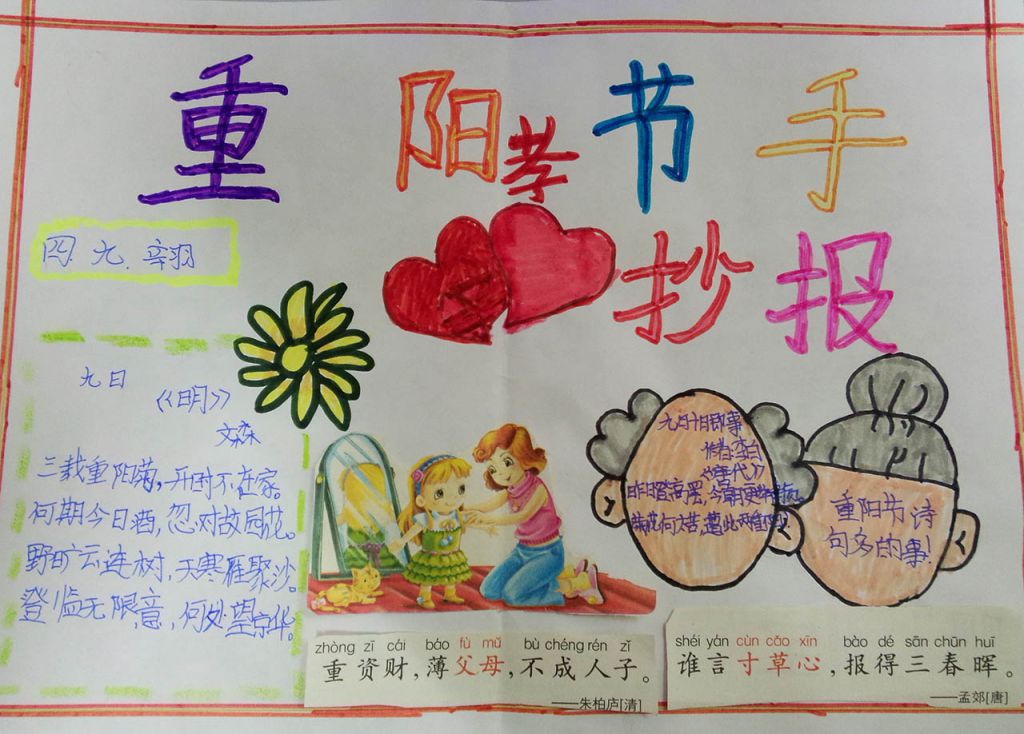 重阳节手
孝
抄报
四. 九.
九日
《明》
文森
三载重阳菊,开时不在家。
何期今日酒,忽对故园花。
野旷云连树,天寒雁聚沙。
登临无限意,何处望京华。
九月十日即事
李白
《唐代》
昨日登高罢,今朝更
菊花何太苦,遭此两重
重阳节诗
句多的事!
zhòng zī cái báo fù mǔ bù chéng rén zǐ
重资财,薄父母,不成人子。
——朱柏庐[清]
shéi yán cùn cǎo xīn bào dé sān chūn huī
谁言寸草心,报得三春晖。
——孟郊[唐]